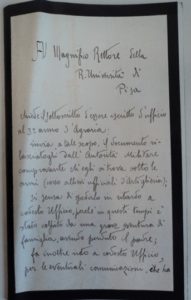 Al Magnifico Rettore della
R. Università di
Pisa
chiede il sottoscritto d'essere iscritto d'ufficio
al 3º anno d'Agraria:
invia a tale scopo, il documento ri-
lasciatogli dall'Autorità Militare
comprovante ch'egli si trova sotto le
armi (corso allievi ufficiali d'Artiglieria).
si scusa di qualche ritardo a
codesto Ufficio, perchè in questi tempi è
stato colpito da una grave sventura di
famiglia, avendo perduto il padre;
fa inoltre noto a codesto Ufficio,
per le eventuali comunicazioni, che ha